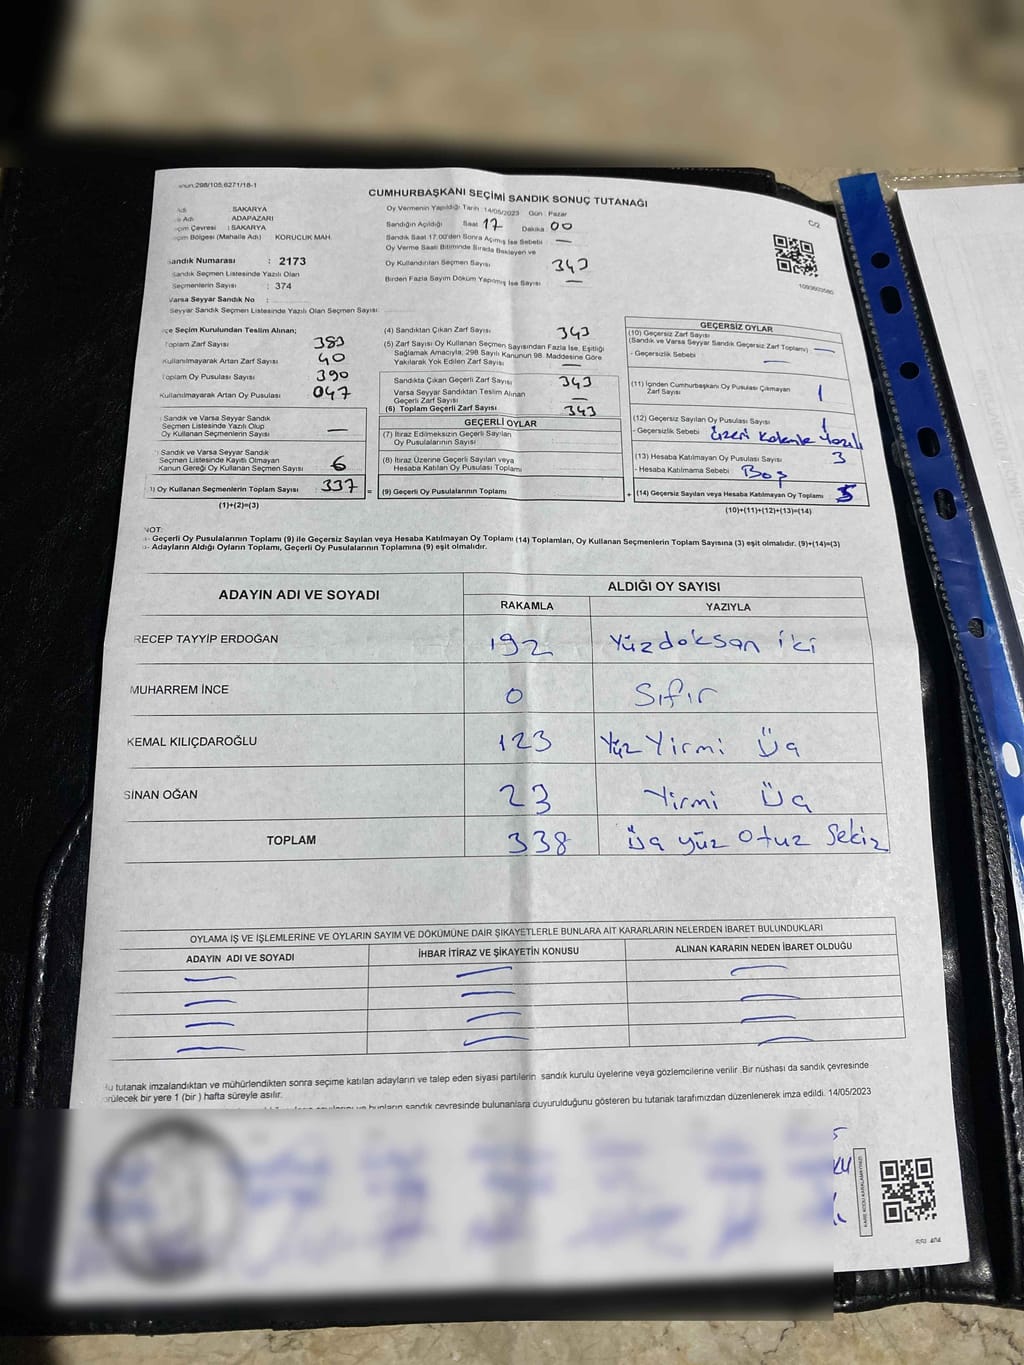 CUMHURBAŞKANI SEÇİMİ SANDIK SONUÇ TUTANAĞI
C/2
SAKARYA
ADAPAZARI
: SAKARYA
KORUCUK MAH.
Sandık Numarası : 2173
Sandık Seçmen Listesinde Yazılı Olan
Seçmenlerin Sayısı : 374
Varsa Seyyar Sandık No :
Seyyar Sandık Seçmen Listesinde Yazılı Olan Seçmen Sayısı:
Oy Vermenin Yapıldığı Tarih :14/05/2023 Gün : Pazar
Sandığın Açıldığı Saat 17 Dakika 00
Sandık Saat 17:00'den Sonra Açılmış İse Sebebi : —
Oy Verme Saati Bitiminde Sırada Bekleyen ve
Oy Kullandırılan Seçmen Sayısı : 343
Birden Fazla Sayım Döküm Yapılmış İse Sayısı : —
1093603580
çe Seçim Kurulundan Teslim Alınan;
Toplam Zarf Sayısı : 383
Kullanılmayarak Artan Zarf Sayısı : 40
Toplam Oy Pusulası Sayısı : 390
Kullanılmayarak Artan Oy Pusulası : 047
Sandık ve Varsa Seyyar Sandık
Seçmen Listesinde Yazılı Olup
Oy Kullanan Seçmenlerin Sayısı : —
Sandık ve Varsa Seyyar Sandık
Seçmen Listesinde Kayıtlı Olmayan
Kanun Gereği Oy Kullanan Seçmen Sayısı : 6
Oy Kullanan Seçmenlerin Toplam Sayısı : 337 =
(1)+(2)=(3)
(4) Sandıktan Çıkan Zarf Sayısı : 343
(5) Zarf Sayısı Oy Kullanan Seçmen Sayısından Fazla İse, Eşitliği
Sağlamak Amacıyla; 298 Sayılı Kanunun 98. Maddesine Göre
Yakılarak Yok Edilen Zarf Sayısı : —
Sandıkta Çıkan Geçerli Zarf Sayısı : 343
Varsa Seyyar Sandıktan Teslim Alınan
Geçerli Zarf Sayısı : —
(6) Toplam Geçerli Zarf Sayısı : 343
GEÇERLİ OYLAR
(7) İtiraz Edilmeksizin Geçerli Sayılan
Oy Pusulalarının Sayısı :
(8) İtiraz Üzerine Geçerli Sayılan veya
Hesaba Katılan Oy Pusulası Toplamı :
(9) Geçerli Oy Pusulalarının Toplamı +
GEÇERSİZ OYLAR
(10) Geçersiz Zarf Sayısı
(Sandık ve Varsa Seyyar Sandık Geçersiz Zarf Toplamı) : —
- Geçersizlik Sebebi : —
(11) İçinden Cumhurbaşkanı Oy Pusulası Çıkmayan
Zarf Sayısı : 1
(12) Geçersiz Sayılan Oy Pusulası Sayısı : 1
- Geçersizlik Sebebi : Üzeri Kalemle Yazılı
(13) Hesaba Katılmayan Oy Pusulası Sayısı : 3
- Hesaba Katılmama Sebebi : Boş
(14) Geçersiz Sayılan veya Hesaba Katılmayan Oy Toplamı : 5
(10)+(11)+(12)+(13)=(14)
NOT:
- Geçerli Oy Pusulalarının Toplamı (9) ile Geçersiz Sayılan veya Hesaba Katılmayan Oy Toplamı (14) Toplamları, Oy Kullanan Seçmenlerin Toplam Sayısına (3) eşit olmalıdır. (9)+(14)=(3)
- Adayların Aldığı Oyların Toplamı, Geçerli Oy Pusulalarının Toplamına (9) eşit olmalıdır.
ADAYIN ADI VE SOYADI
ALDIĞI OY SAYISI
RAKAMLA YAZIYLA
RECEP TAYYİP ERDOĞAN 192 Yüzdoksan iki
MUHARREM İNCE 0 Sıfır
KEMAL KILIÇDAROĞLU 123 Yüz Yirmi Üç
SİNAN OĞAN 23 Yirmi Üç
TOPLAM 338 Üç yüz Otuz Sekiz
OYLAMA İŞ VE İŞLEMLERİNE VE OYLARIN SAYIM VE DÖKÜMÜNE DAİR ŞİKAYETLERLE BUNLARA AİT KARARLARIN NELERDEN İBARET BULUNDUKLARI
ADAYIN ADI VE SOYADI İHBAR İTİRAZ VE ŞİKAYETİN KONUSU ALINAN KARARIN NEDEN İBARET OLDUĞU
— — —
— — —
— — —
— — —
u tutanak imzalandıktan ve mühürlendikten sonra seçime katılan adayların ve talep eden siyasi partilerin sandık kurulu üyelerine veya gözlemcilerine verilir .Bir nüshası da sandık çevresinde
örülecek bir yere 1 (bir ) hafta süreyle asılır.
bunların sandık çevresinde bulunanlara duyurulduğunu gösteren bu tutanak tarafımızdan düzenlenerek imza edildi. 14/05/2023